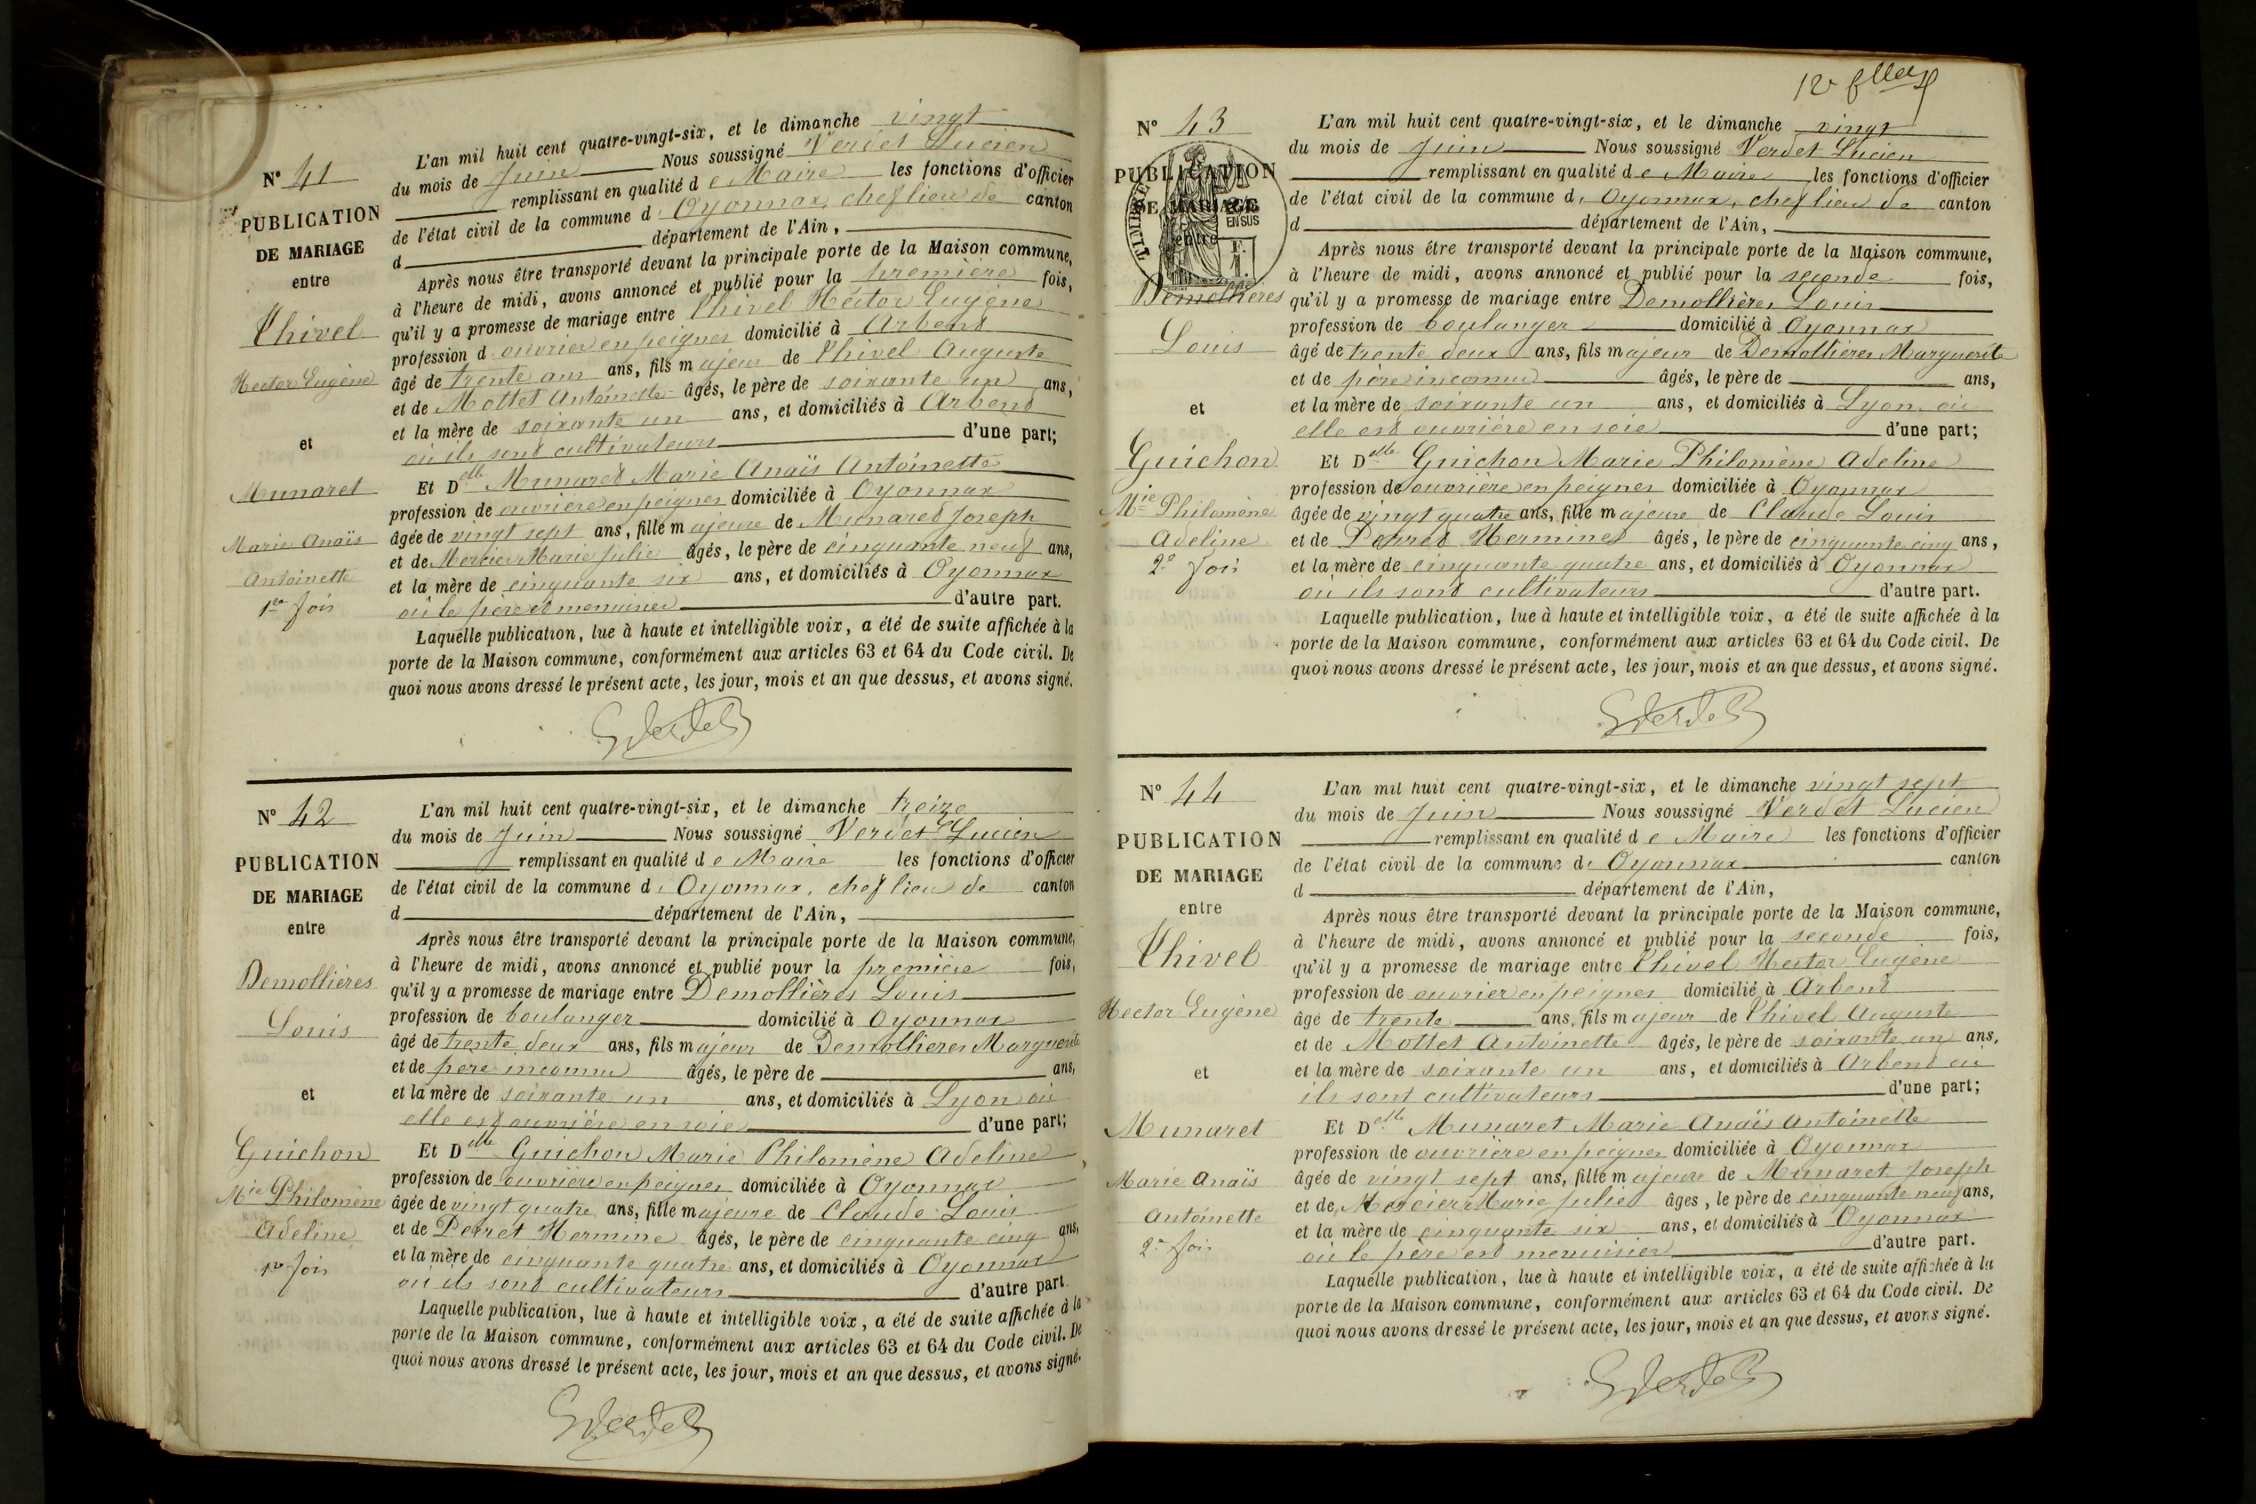 N° 41
PUBLICATION
DE MARIAGE
entre
Chivel
Hector Eugène
et
Munaret
Marie Anaïs
Antoinette
1re fois
L'an mil huit cent quatre-vingt-six, et le dimanche vingt
du mois de Juin Nous soussigné Verdet Lucien
remplissant en qualité de Maire les fonctions d'officier
de l'état civil de la commune d' Oyonnax, chef lieu de canton
d département de l'Ain,
Après nous être transporté devant la principale porte de la Maison commune,
à l'heure de midi, avons annoncé et publié pour la première fois,
qu'il y a promesse de mariage entre Chivel Hector Eugène
profession d ouvrier en peignes domicilié à Arbent
âgé de trente ans ans, fils majeur de Chivel Auguste
et de Mottet Antoinette âgés, le père de soixante un ans,
et la mère de soixante un ans, et domiciliés à Arbent
où ils sont cultivateurs d'une part;
Et Delle Munaret Marie Anaïs Antoinette
profession de ouvrière en peignes domiciliée à Oyonnax
âgée de vingt sept ans, fille majeure de Munaret Joseph
et de Mercier Marie Julie âgés, le père de cinquante neuf ans,
et la mère de cinquante six ans, et domiciliés à Oyonnax
où le père est menuisier d'autre part.
Laquelle publication, lue à haute et intelligible voix, a été de suite affichée à la
porte de la Maison commune, conformément aux articles 63 et 64 du Code civil. De
quoi nous avons dressé le présent acte, les jour, mois et an que dessus, et avons signé.
N° 42
PUBLICATION
DE MARIAGE
entre
Demollières
Louis
et
Guichon
Mie Philomène
Adeline
1re fois
L'an mil huit cent quatre-vingt-six, et le dimanche treize
du mois de Juin Nous soussigné Verdet Lucien
remplissant en qualité de Maire les fonctions d'officier
de l'état civil de la commune d' Oyonnax, chef lieu de canton
d département de l'Ain,
Après nous être transporté devant la principale porte de la Maison commune,
à l'heure de midi, avons annoncé et publié pour la première fois,
qu'il y a promesse de mariage entre Demollières Louis
profession de boulanger domicilié à Oyonnax
âgé de trente deux ans, fils majeur de Demollières Marguerite
et de père inconnu âgés, le père de ans,
et la mère de soixante un ans, et domiciliés à Lyon où
elle est ouvrière en soie d'une part;
Et Delle Guichon Marie Philomène Adeline
profession de ouvrière en peignes domiciliée à Oyonnax
âgée de vingt quatre ans, fille majeure de Claude Louis
et de Perret Hermine âgés, le père de cinquante cinq ans,
et la mère de cinquante quatre ans, et domiciliés à Oyonnax
où ils sont cultivateurs d'autre part.
Laquelle publication, lue à haute et intelligible voix, a été de suite affichée à la
porte de la Maison commune, conformément aux articles 63 et 64 du Code civil. De
quoi nous avons dressé le présent acte, les jour, mois et an que dessus, et avons signé.
N° 43
PUBLICATION
DE MARIAGE
entre
TIMBRE
EN SUS
Demollières
Louis
et
Guichon
Mie Philomène
Adeline
2e fois
L'an mil huit cent quatre-vingt-six, et le dimanche vingt
du mois de Juin Nous soussigné Verdet Lucien
remplissant en qualité de Maire les fonctions d'officier
de l'état civil de la commune d' Oyonnax, chef lieu de canton
d département de l'Ain,
Après nous être transporté devant la principale porte de la Maison commune,
à l'heure de midi, avons annoncé et publié pour la seconde fois,
qu'il y a promesse de mariage entre Demollières Louis
profession de boulanger domicilié à Oyonnax
âgé de trente deux ans, fils majeur de Demollières Marguerite
et de père inconnu âgés, le père de ans,
et la mère de soixante un ans, et domiciliés à Lyon où
elle est ouvrière en soie d'une part;
Et Delle Guichon Marie Philomène Adeline
profession de ouvrière en peignes domiciliée à Oyonnax
âgée de vingt quatre ans, fille majeure de Claude Louis
et de Perret Hermine âgés, le père de cinquante cinq ans,
et la mère de cinquante quatre ans, et domiciliés à Oyonnax
où ils sont cultivateurs d'autre part.
Laquelle publication, lue à haute et intelligible voix, a été de suite affichée à la
porte de la Maison commune, conformément aux articles 63 et 64 du Code civil. De
quoi nous avons dressé le présent acte, les jour, mois et an que dessus, et avons signé.
N° 44
PUBLICATION
DE MARIAGE
entre
Chivel
Hector Eugène
et
Munaret
Marie Anaïs
Antoinette
2e fois
L'an mil huit cent quatre-vingt-six, et le dimanche vingt sept
du mois de Juin Nous soussigné Verdet Lucien
remplissant en qualité de Maire les fonctions d'officier
de l'état civil de la commune d' Oyonnax canton
d département de l'Ain,
Après nous être transporté devant la principale porte de la Maison commune,
à l'heure de midi, avons annoncé et publié pour la seconde fois,
qu'il y a promesse de mariage entre Chivel Hector Eugène
profession de ouvrier en peignes domicilié à Arbent
âgé de trente ans, fils majeur de Chivel Auguste
et de Mottet Antoinette âgés, le père de soixante un ans,
et la mère de soixante un ans, et domiciliés à Arbent où
ils sont cultivateurs d'une part;
Et Delle Munaret Marie Anaïs Antoinette
profession de ouvrière en peignes domiciliée à Oyonnax
âgée de vingt sept ans, fille majeure de Munaret Joseph
et de Mercier Marie Julie âges, le père de cinquante neuf ans,
et la mère de cinquante six ans, et domiciliés à Oyonnax
où le père est menuisier d'autre part.
Laquelle publication, lue à haute et intelligible voix, a été de suite affichée à la
porte de la Maison commune, conformément aux articles 63 et 64 du Code civil. De
quoi nous avons dressé le présent acte, les jour, mois et an que dessus, et avons signé.